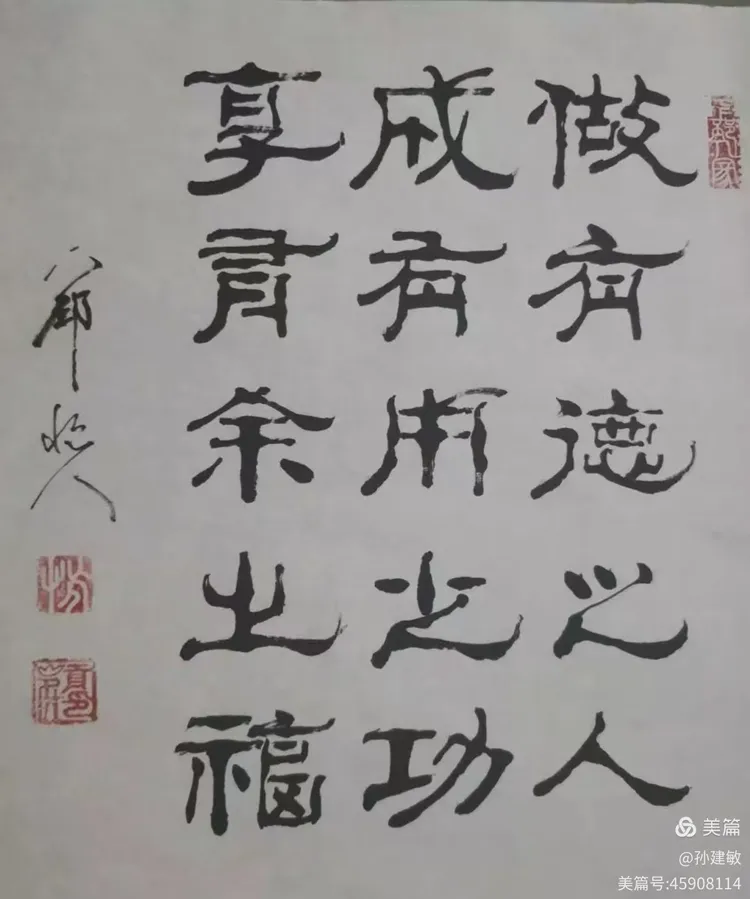 做有德之人
成有用之功
享有余之福
美篇
@孙建敏
美篇号:45908114